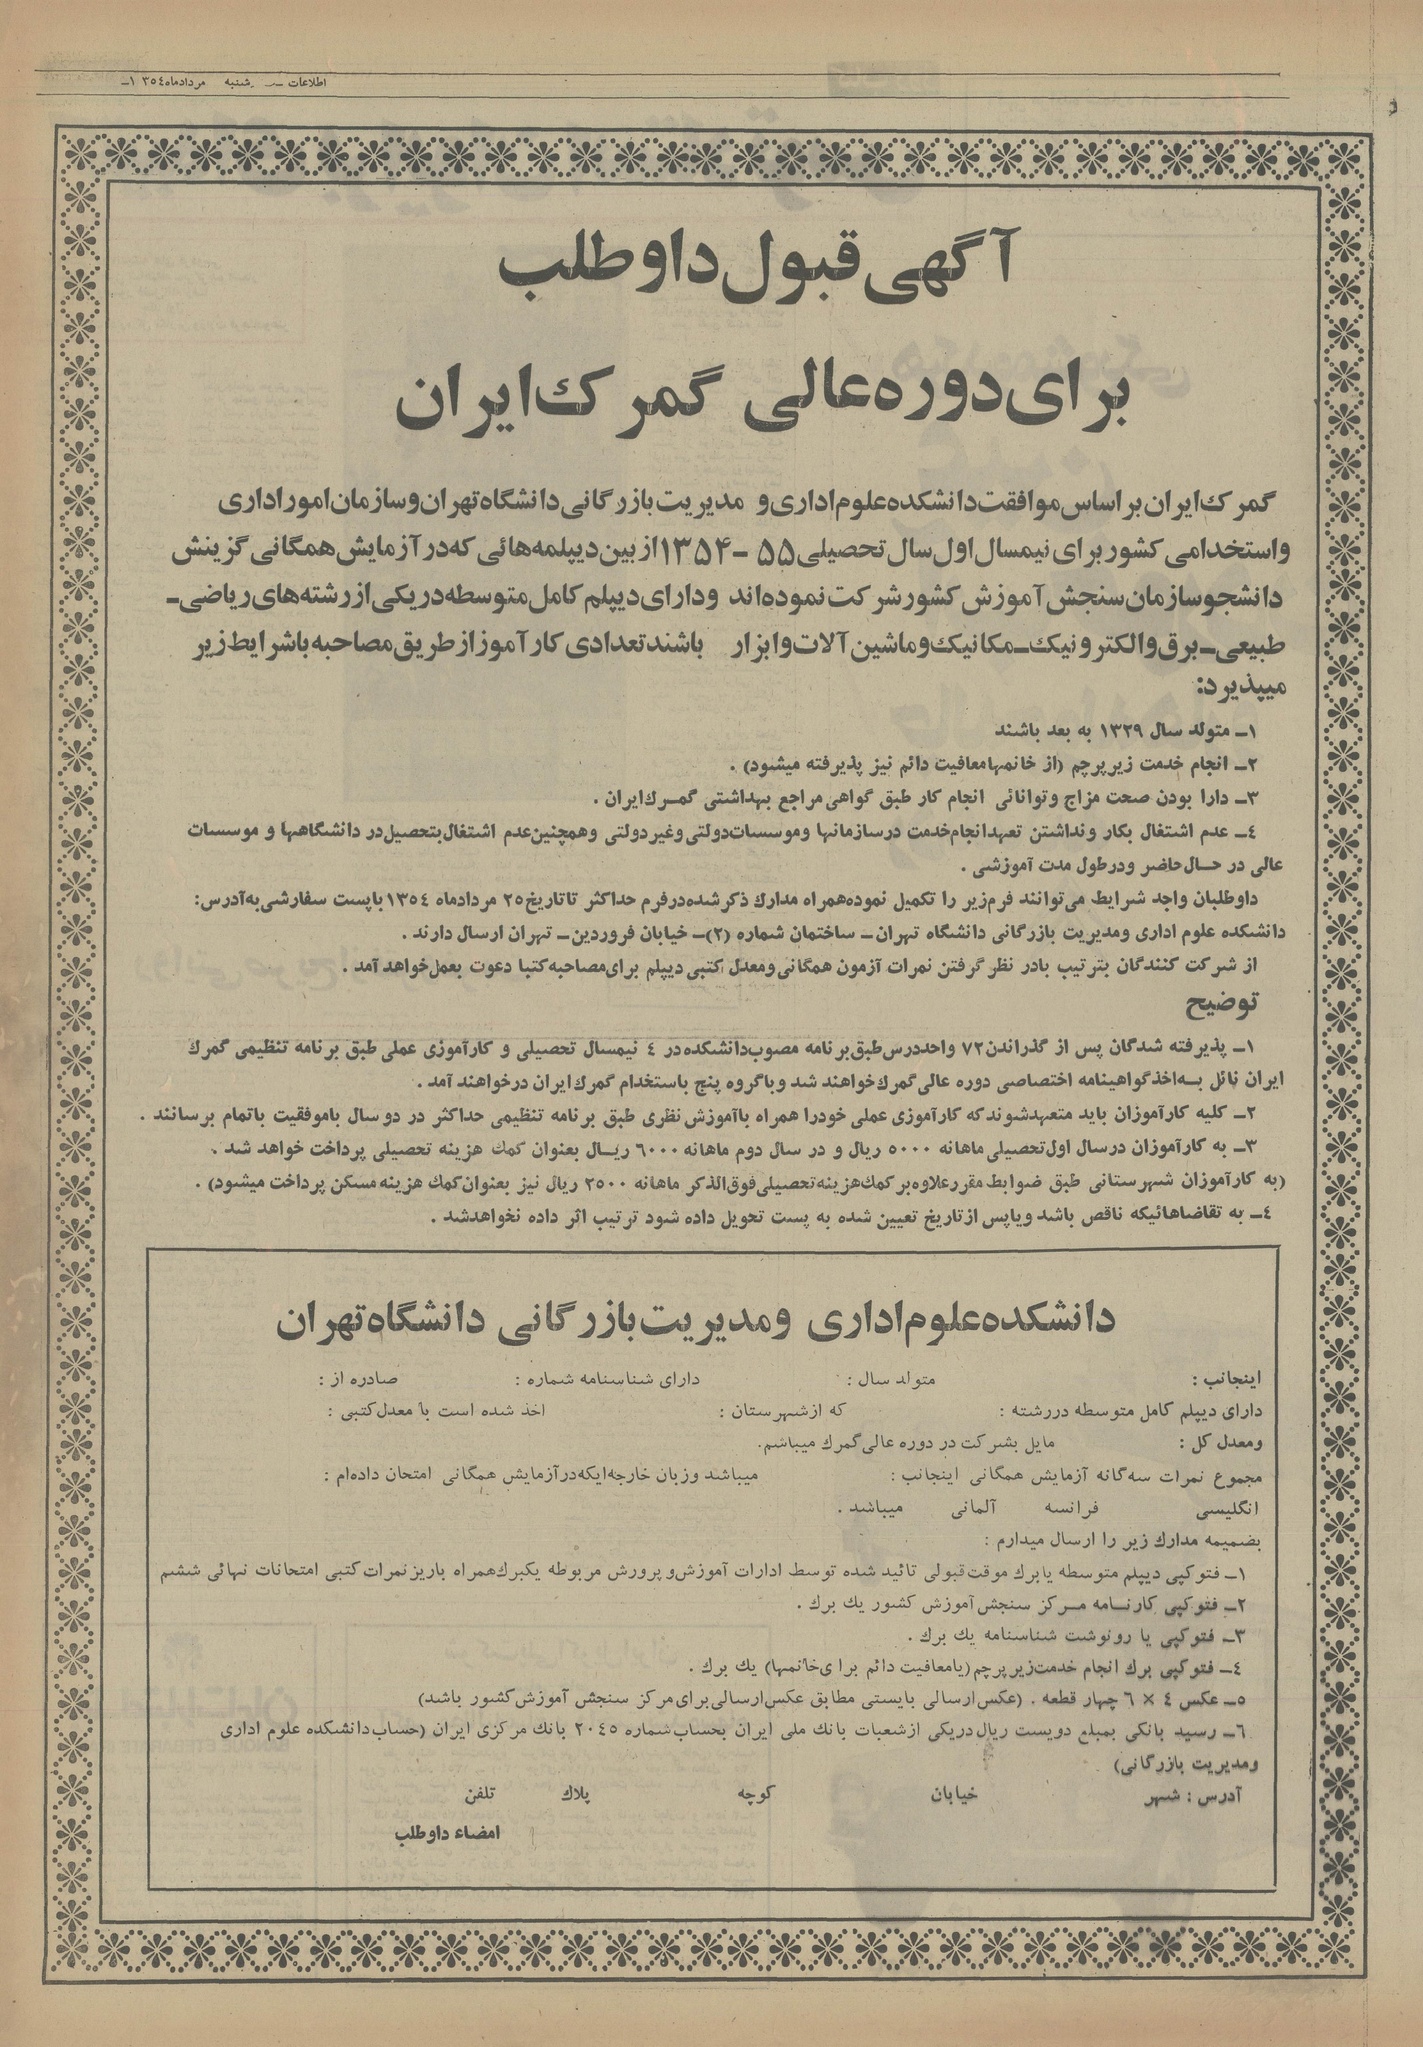 اطلاعات ــ شنبه مردادماه ۱۳۵٤ـ
آگهی قبول داوطلب
برای دوره عالی گمرك ایران
گمرك ایران بر اساس موافقت دانشکده علوم اداری و مدیریت بازرگانی دانشگاه تهران و سازمان امور اداری
و استخدامی کشور برای نیمسال اول سال تحصیلی ۵۵ - ۱۳۵۴ از بین دیپلمه‌هائی که در آزمایش همگانی گزینش
دانشجو سازمان سنجش آموزش کشور شرکت نموده‌اند و دارای دیپلم کامل متوسطه در یکی از رشته‌های ریاضی ـ
طبیعی ـ برق و الکترونیک ـ مکانیک و ماشین آلات و ابزار باشند تعدادی کارآموز از طریق مصاحبه با شرایط زیر
میپذیرد:
۱ـ متولد سال ۱۳۲۹ به بعد باشند
۲ـ انجام خدمت زیر پرچم (از خانمها معافیت دائم نیز پذیرفته میشود) .
۳ـ دارا بودن صحت مزاج و توانائی انجام کار طبق گواهی مراجع بهداشتی گمرك ایران .
٤ـ عدم اشتغال بکار و نداشتن تعهد انجام خدمت در سازمانها و موسسات دولتی و غیر دولتی و همچنین عدم اشتغال بتحصیل در دانشگاهها و موسسات
عالی در حال حاضر و در طول مدت آموزشی .
داوطلبان واجد شرایط می‌توانند فرم زیر را تکمیل نموده همراه مدارك ذکر شده در فرم حداکثر تا تاریخ ۲۵ مرداد ماه ۱۳۵٤ با پست سفارشی به آدرس:
دانشکده علوم اداری و مدیریت بازرگانی دانشگاه تهران ـ ساختمان شماره (۲) ـ خیابان فروردین ـ تهران ارسال دارند .
از شرکت کنندگان بترتیب با در نظر گرفتن نمرات آزمون همگانی و معدل کتبی دیپلم برای مصاحبه کتبا دعوت بعمل خواهد آمد .
توضیح
۱ـ پذیرفته شدگان پس از گذراندن ۷۲ واحد درس طبق برنامه مصوب دانشکده در ٤ نیمسال تحصیلی و کارآموزی عملی طبق برنامه تنظیمی گمرك
ایران نائل به اخذ گواهینامه اختصاصی دوره عالی گمرك خواهند شد و با گروه پنج باستخدام گمرك ایران درخواهند آمد .
۲ـ کلیه کارآموزان باید متعهد شوند که کارآموزی عملی خود را همراه با آموزش نظری طبق برنامه تنظیمی حداکثر در دو سال با موفقیت باتمام برسانند .
۳ـ به کارآموزان در سال اول تحصیلی ماهانه ۵۰۰۰ ریال و در سال دوم ماهانه ۶۰۰۰ ریال بعنوان کمك هزینه تحصیلی پرداخت خواهد شد .
(به کارآموزان شهرستانی طبق ضوابط مقرر علاوه بر کمك هزینه تحصیلی فوق‌الذکر ماهانه ۲۵۰۰ ریال نیز بعنوان کمك هزینه مسکن پرداخت میشود) .
٤ـ به تقاضاهائیکه ناقص باشد و یا پس از تاریخ تعیین شده به پست تحویل داده شود ترتیب اثر داده نخواهد شد .
دانشکده علوم اداری و مدیریت بازرگانی دانشگاه تهران
اینجانب : متولد سال : دارای شناسنامه شماره : صادره از :
دارای دیپلم کامل متوسطه در رشته : که از شهرستان : اخذ شده است با معدل کتبی :
و معدل کل : مایل بشرکت در دوره عالی گمرك میباشم.
مجموع نمرات سه گانه آزمایش همگانی اینجانب : میباشد و زبان خارجه‌ایکه در آزمایش همگانی امتحان داده‌ام :
انگلیسی فرانسه آلمانی میباشد .
بضمیمه مدارك زیر را ارسال میدارم :
۱ـ فتوکپی دیپلم متوسطه یا برك موقت قبولی تائید شده توسط ادارات آموزش و پرورش مربوطه یکبرك همراه با ریز نمرات کتبی امتحانات نهائی ششم
۲ـ فتوکپی کارنامه مرکز سنجش آموزش کشور یك برك .
۳ـ فتوکپی یا رونوشت شناسنامه یك برك .
٤ـ فتوکپی برك انجام خدمت زیر پرچم (یا معافیت دائم برای خانمها) یك برك .
۵ـ عکس ٤ × ٦ چهار قطعه . (عکس ارسالی بایستی مطابق عکس ارسالی برای مرکز سنجش آموزش کشور باشد)
٦ـ رسید بانکی بمبلغ دویست ریال در یکی از شعبات بانك ملی ایران بحساب شماره ۲۰٤۵ بانك مرکزی ایران (حساب دانشکده علوم اداری
و مدیریت بازرگانی)
آدرس : شهر خیابان کوچه پلاك تلفن
امضاء داوطلب